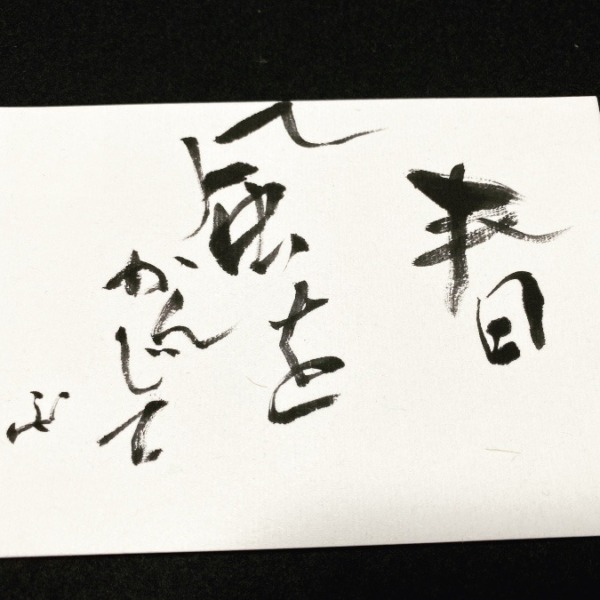 春
風を
かんじて